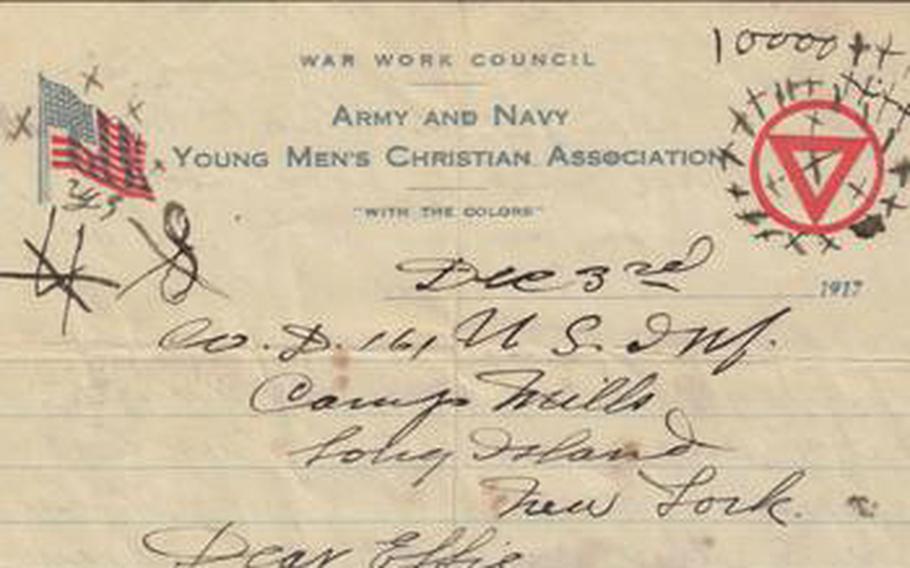 10000
WAR WORK COUNCIL
ARMY AND NAVY
YOUNG MEN'S CHRISTIAN ASSOCIATION
"WITH THE COLORS"
Dec 3rd 1917
Co. D. 161 U S. Inf.
Camp Mills
Long Island
New York.
Dear Effie